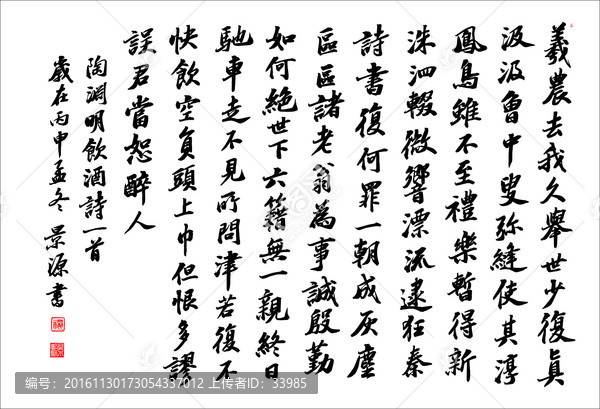 羲農去我久舉世少復真
汲汲魯中叟弥縫使其淳
鳳鳥雖不至禮樂暫得新
洙泗輟微響漂流逮狂秦
詩書復何罪一朝成灰塵
區區諸老翁為事誠殷勤
如何絕世下六籍無一親終日
馳車走不見所問津若復不
快飲空負頭上巾但恨多謬
誤君當恕醉人
陶淵明飲酒詩一首
歲在丙申孟冬景源書
编号：20161130173054337012 上传者ID：33985